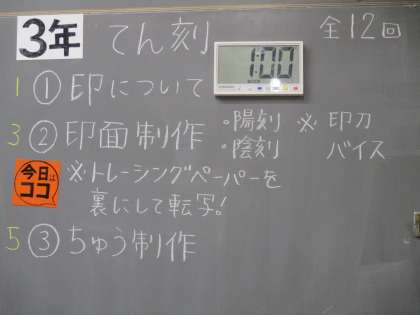 3年 てん刻 全12回
1:00
1 ① 印について
3 ② 印面制作 ・陽刻 ※ 印刀
・陰刻 バイス
今日は ココ
※トレーシングペーパーを
裏にして転写!
5 ③ ちゅう制作